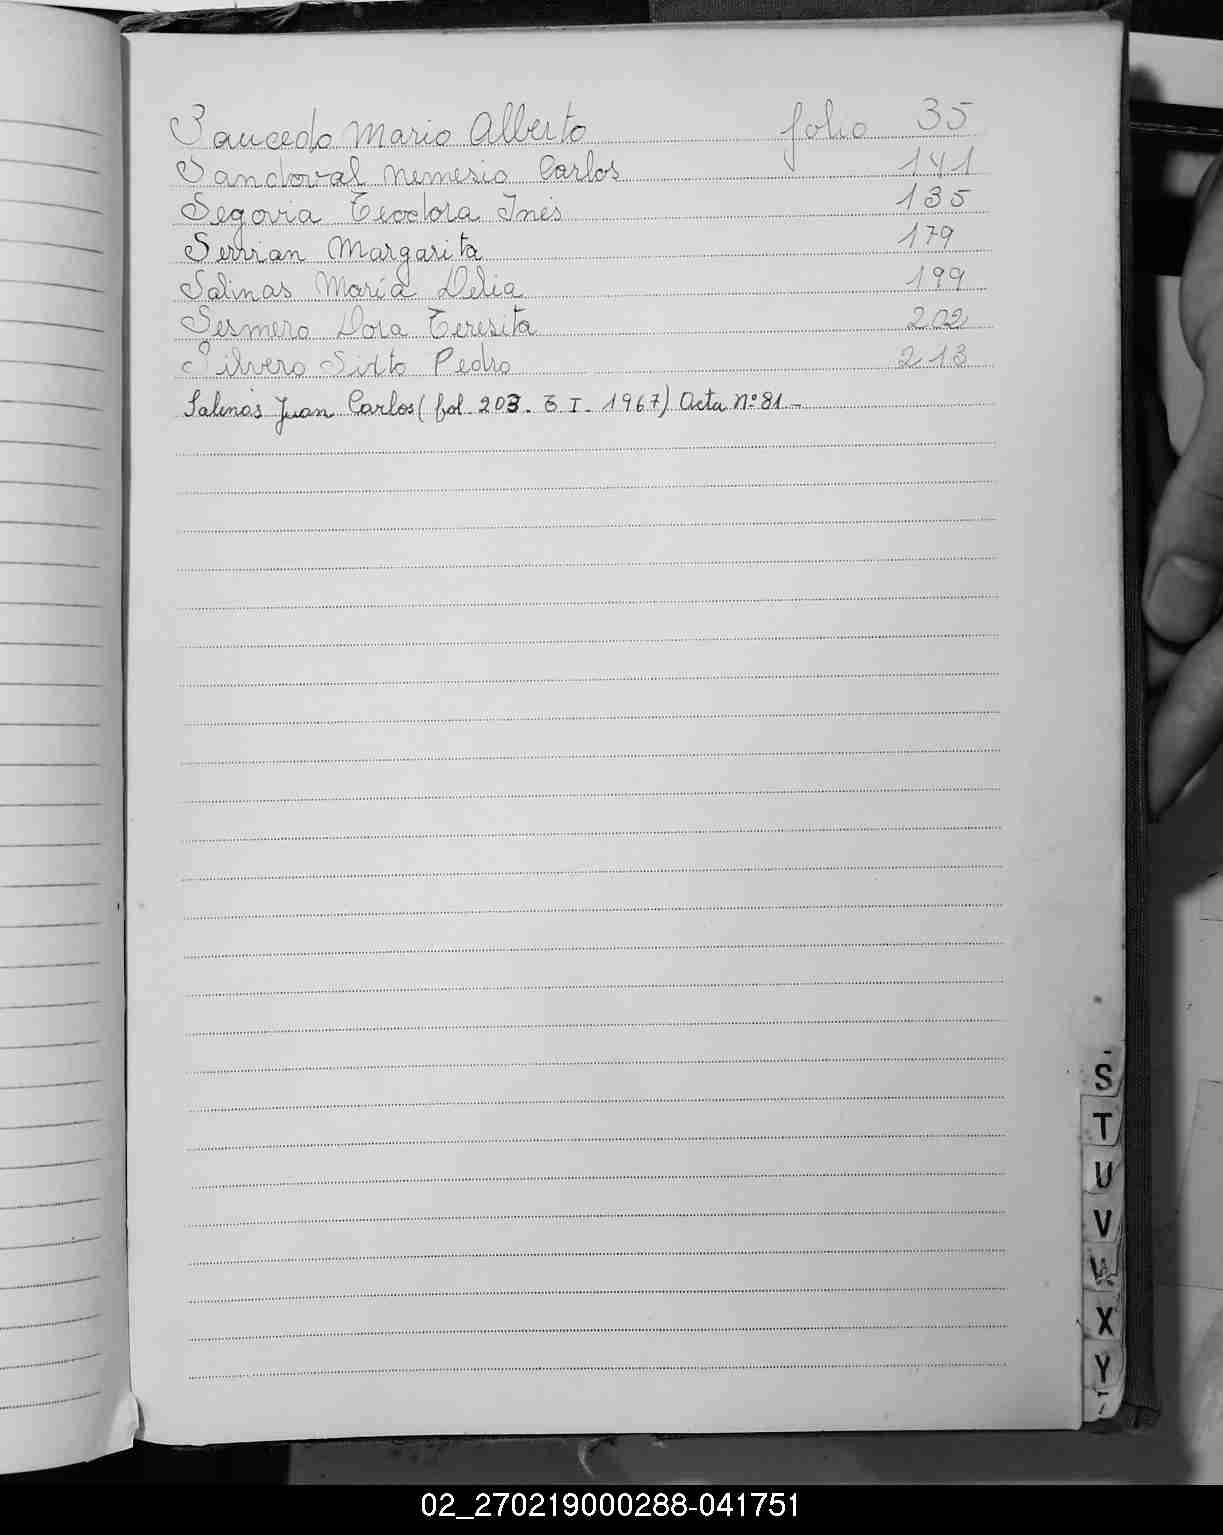 Saucedo Mario Alberto folio 35
Sandoval Nemesio Carlos 141
Segovia Teodora Inés 135
Serrian Margarita 179
Salinas María Delia 199
Sesmero Dora Teresita 202
Silvero Sixto Pedro 213
Salinas Juan Carlos (fol. 203. T I. 1967) Acta Nº 81-
S
T
U
V
W
X
Y
02_270219000288-041751